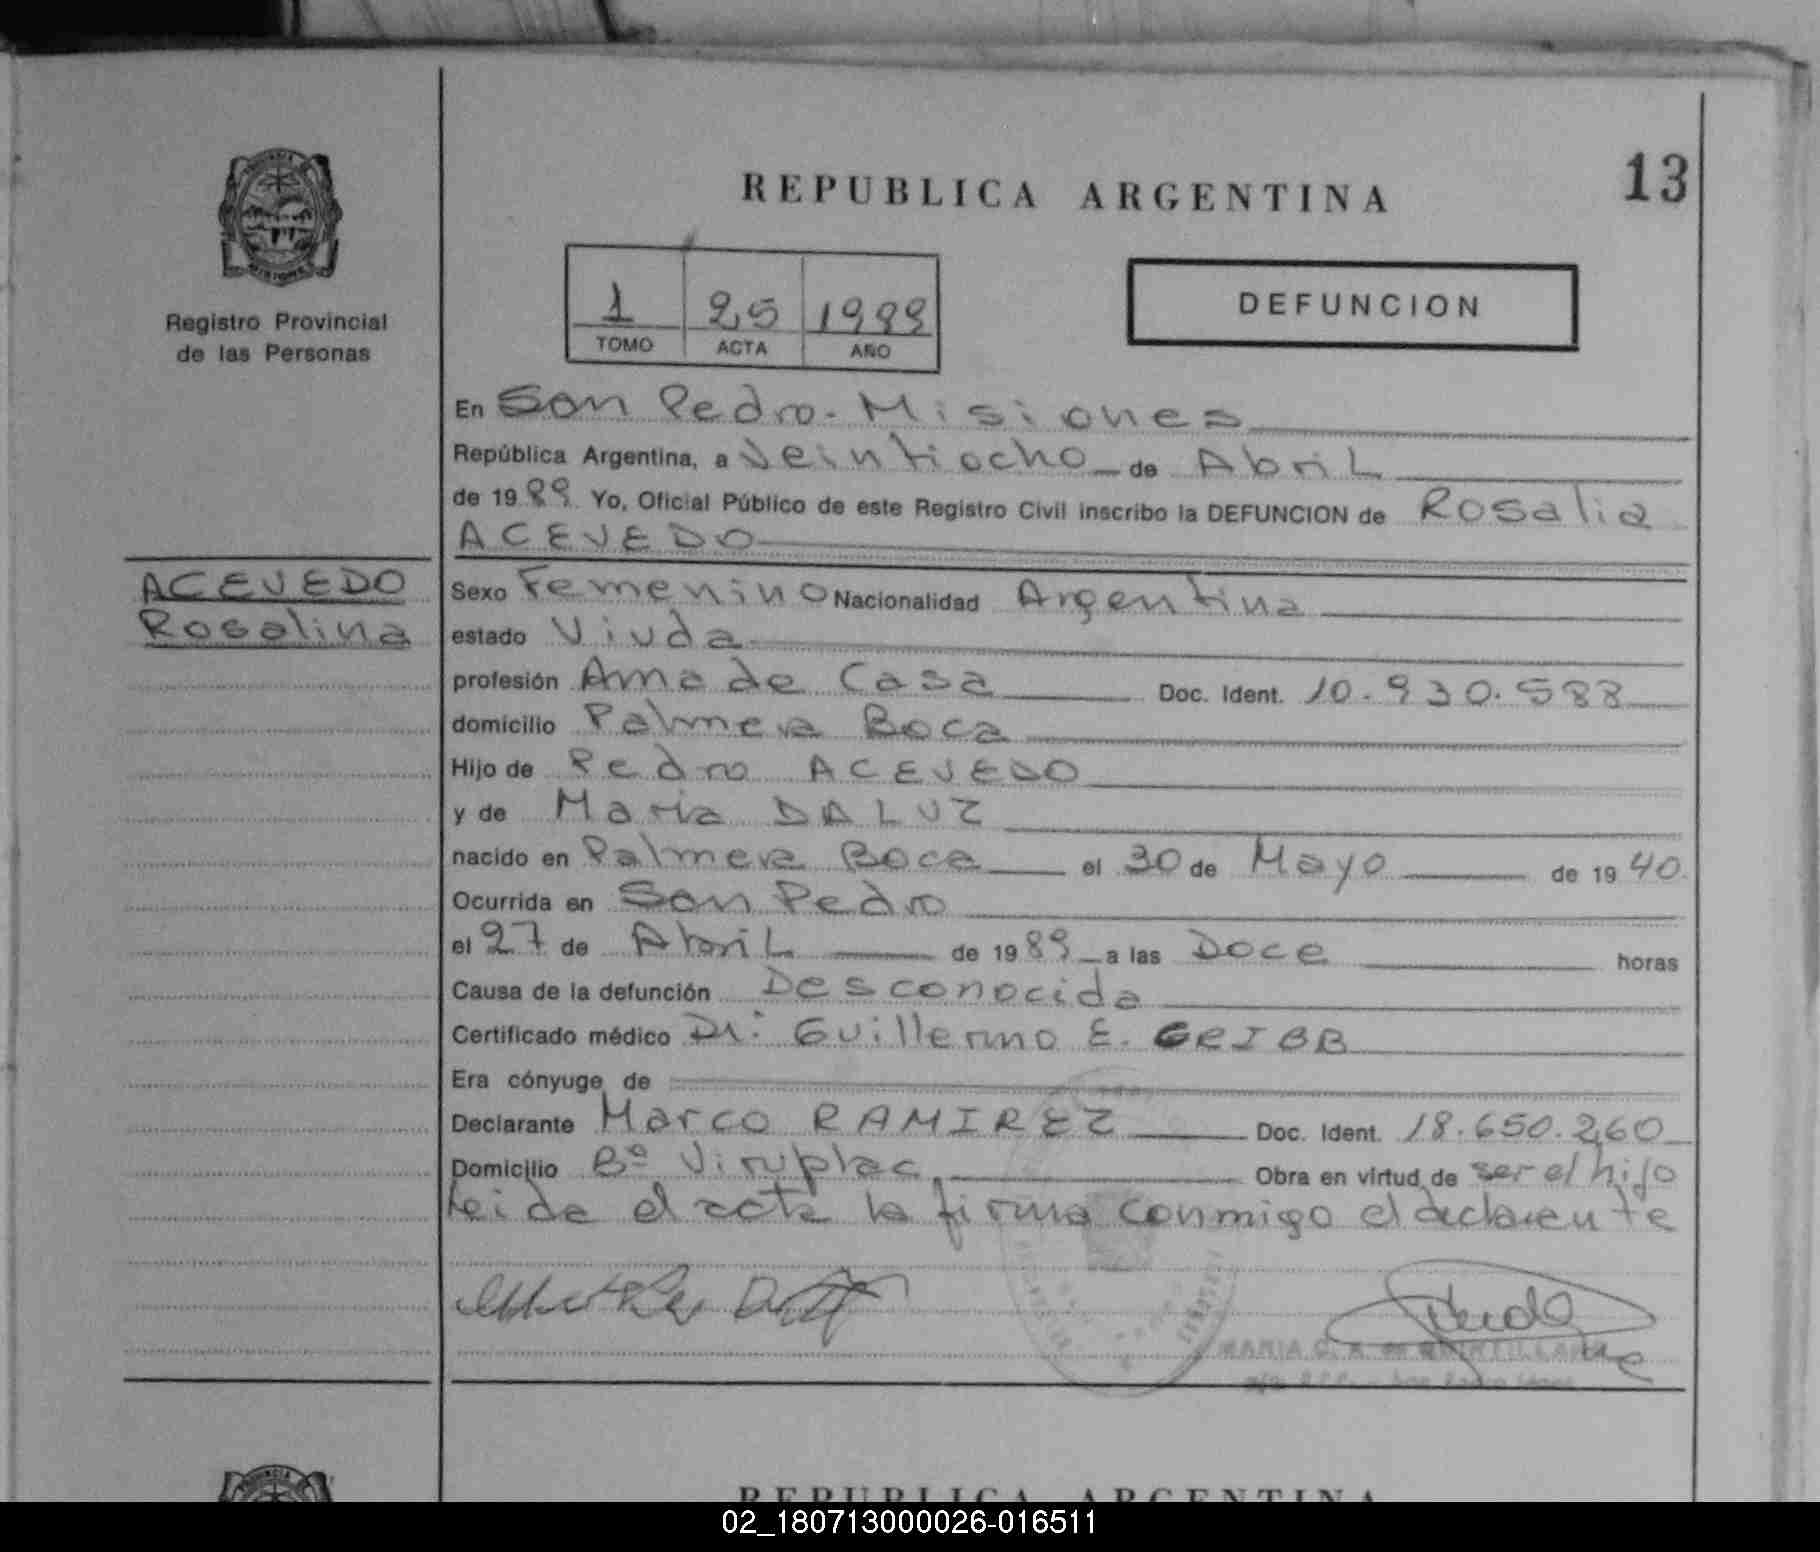 REPUBLICA ARGENTINA
13
Registro Provincial
de las Personas
1 25 1989
TOMO ACTA AÑO
DEFUNCION
En San Pedro - Misiones
República Argentina, a Veintiocho de Abril
de 1989 Yo, Oficial Público de este Registro Civil inscribo la DEFUNCION de Rosalia
ACEVEDO
ACEVEDO
Rosalina
Sexo Femenino Nacionalidad Argentina
estado Viuda
profesión Ama de Casa Doc. Ident. 10.930.588
domicilio Palmera Boca
Hijo de Pedro ACEVEDO
y de Maria DALUZ
nacido en Palmera Boca el 30 de Mayo de 1940
Ocurrida en San Pedro
el 27 de Abril de 1989 a las Doce horas
Causa de la defunción Desconocida
Certificado médico Dr: Guillermo E. GRIBB
Era cónyuge de
Declarante Marco RAMIREZ Doc. Ident. 18.650.260
Domicilio Bº Viruplac Obra en virtud de ser el hijo
Leida el acta la firma conmigo el declarente
MARIA
REPUBLICA ARGENTINA
02_180713000026-016511